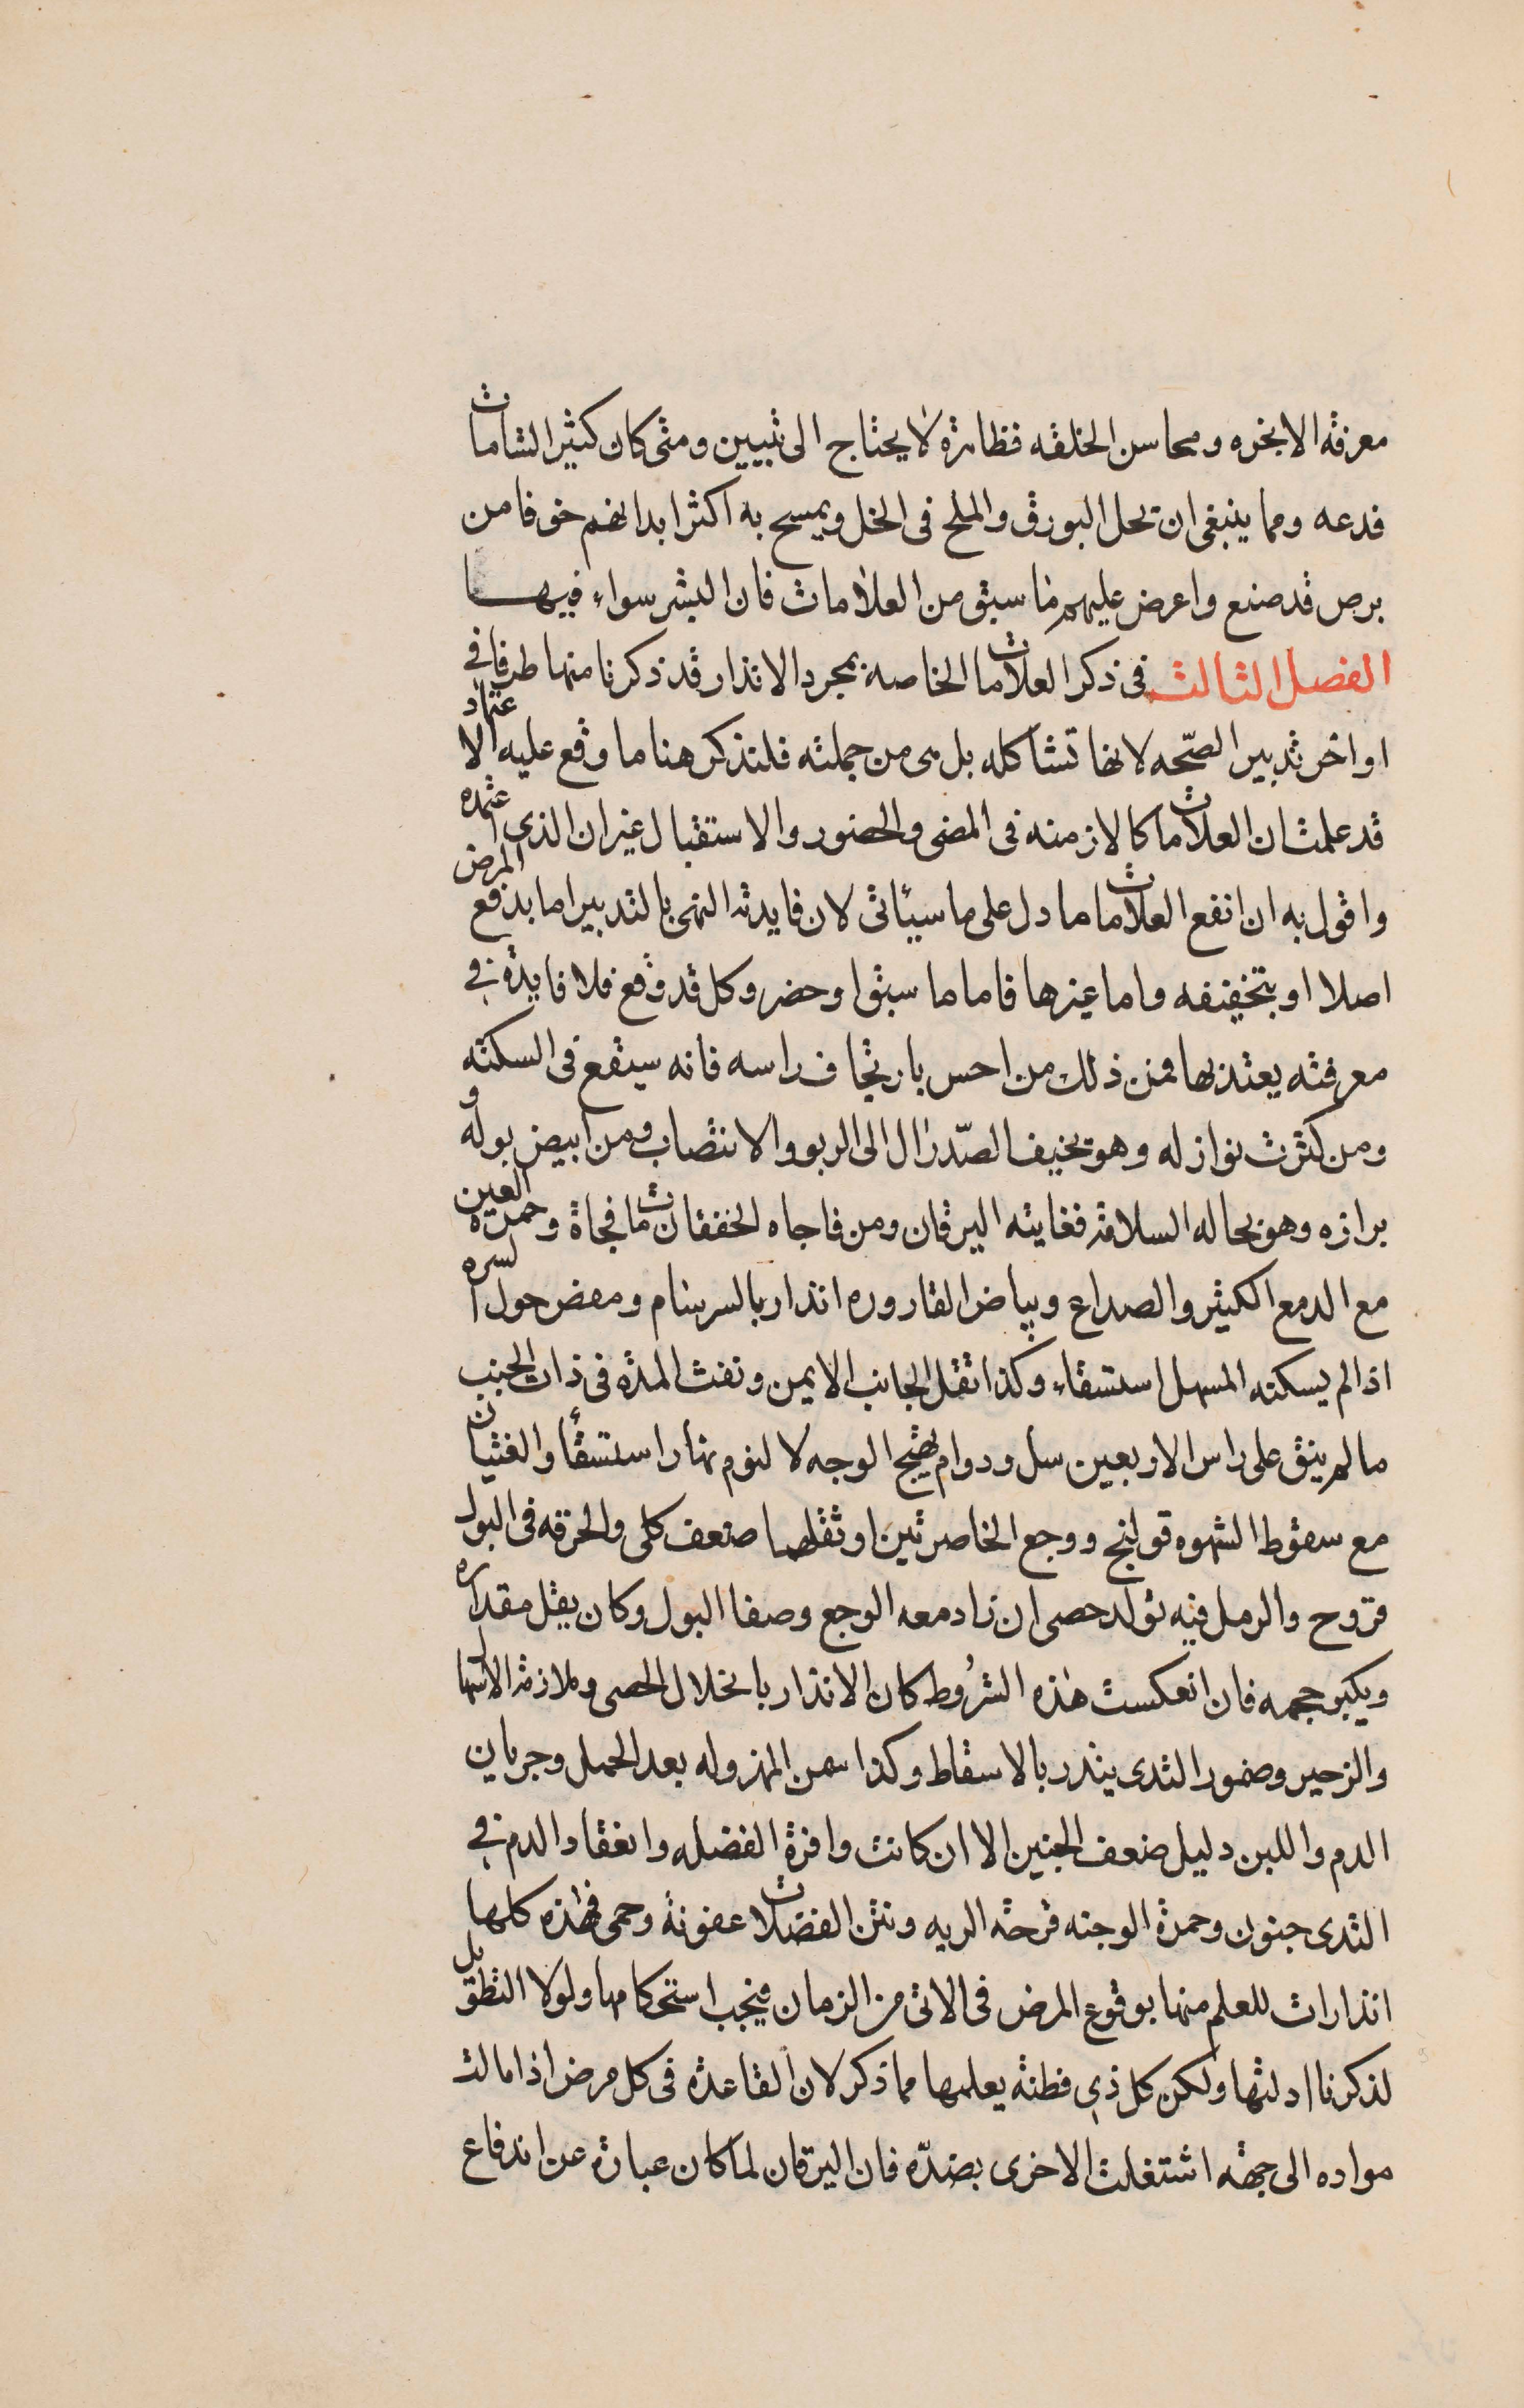 معرفة الابخره ومحاسن الخلقه فظاهرة لا يحتاج الى تبيين ومتى كان كثير الشامات
فدعه ومما ينبغى ان تحل البورق والملح فى الخل ويمسح به اكثر ابدانهم خوفا من
برص قد صنع واعرض عليهم ما سبق من العلامات فان البشر سواء فيها
الفصل الثالث فى ذكر العلامات الخاصة بمجرد الانذار قد ذكرنا منها طرفا في
اواخر تدبير الصّحه لانها تشاكله بل هى من جملته فلنذكر هنا ما وقع عليه الاعتماد
قد علمت ان العلامات كالازمنه فى المضى والحضور والاستقبال غير ان الذى اعتمده
واقول به ان انفع العلامات ما دل على ما سيأتى لان فايدته النهى بالتدبير اما بدفع المرض
اصلا او بتخفيفه واما غيرها فاما ما سبق او حضر وكل قد وقع فلا فايدة في
معرفته يعتد بها فمن ذلك من احس بارتجاف راسه فانه سيقع فى السكته
ومن كثرت نوازله وهو نحيف الصّدر ال الى الربو والانتصاب ومن ابيض بوله و
برازه وهو بحاله السلامة فغايته اليرقان ومن فاجاه الخفقان مات فجاة وحمرة العين
مع الدمع الكثير والصداع وبياض القاروره انذار بالسرسام ومغص حول السره
اذا لم يسكنه المسهل استسقاء وكذا ثقل الجانب الايمن ونفث المدة فى ذات الجنب
ما لم ينق على راس الاربعين سل ودوام تهيج الوجه لا لنوم نهارا استسقأ والغثيان
مع سقوط الشهوه قولنج ووجع الخاصرتين او ثقلهما ضعف كلى والحرقه فى البول
قروح والرمل فيه تولد حصى ان زاد معه الوجع وصفا البول وكان يقل مقداره
ويكبر حجمه فان انعكست هذه الشرُوط كان الانذار بانحلال الحصى وملازمة الاسهال
والزحير وضمور الثدى ينذر بالاسقاط وكذا سمن المهزوله بعد الحمل وجريان
الدم واللبن دليل ضعف الجنين الا ان كانت وافرة الفضله وانعقاد الدم في
الثدى جنون وحمرة الوجنه قرحة الريه ونتن الفضلات عفونة وحمى فهذه كلها
انذارات للعلم منها بوقوع المرض فى الاتى من الزمان فيجب استحكامها ولولا التطويل
لذكرنا ادلتها ولكن كل ذي فطنة يعلمها مما ذكر لان القاعدة فى كل مرض اذا مالت
مواده الى جهة اشتغلت الاخرى بضدّه فان اليرقان لما كان عبارة عن اندفاع